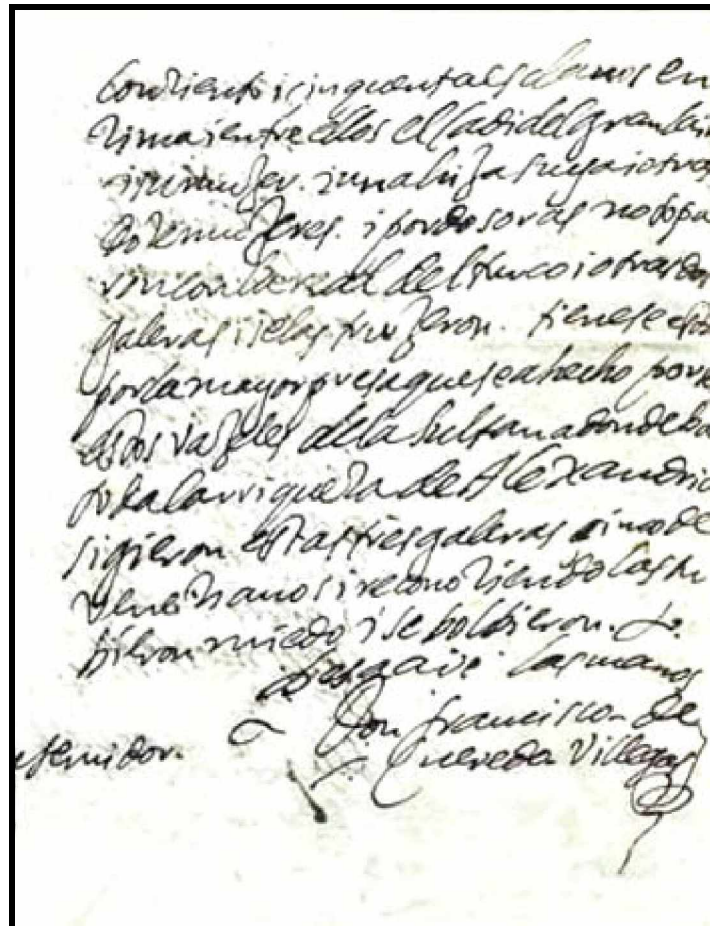 Con ziento i cinquenta esclavos en
rima i entre ellos el Cadi del gran
i su muger. i una hija suya i otras
mugeres. i por dos oras no topa
ron con la real del turco i otras dos
galeras i se las trujeron. tienese esto
por la mayor presa que se a hecho por
estos vajeles de la sultana donde ba
toda la rriqueza de Alexandria
sigieron estas tres galeras
venezianos i reconoziendo las tu
bieron miedo i se bolbieron.
besa a v. las manos
Don francisco de
servidor. Quevedo Villegas